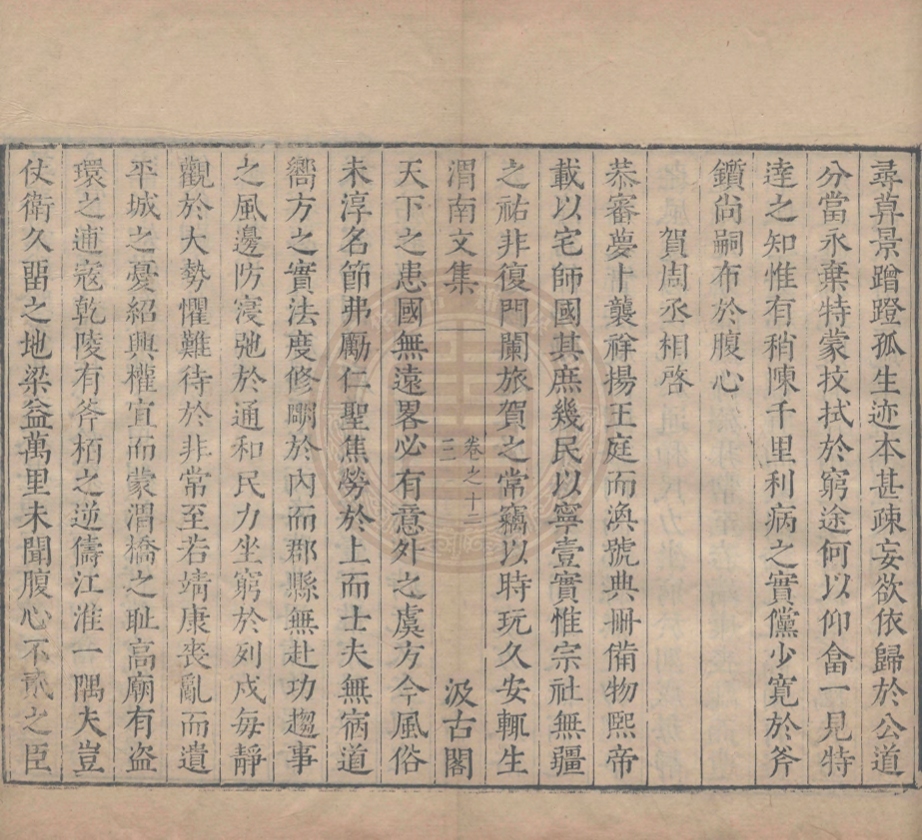 尋葬景蹭蹬孤生迹本甚疎妄欲依歸於公道
分當永棄特蒙抆拭於窮途何以仰畣一見特
達之知惟有稍陳千里利病之實儻少寛於斧
鑕尙嗣布於腹心
賀周丞相啓
恭審夢卜襲祥揚王庭而渙號典冊備物熙帝
載以宅師國其庶幾民以寧壹實惟宗社無疆
之祐非復門闌旅賀之常竊以時玩久安輒生
渭南文集 卷之十二 三 汲古閣
天下之患國無遠畧必有意外之虞方今風俗
未淳名節弗勵仁聖焦勞於上而士夫無宿道
嚮方之實法度修明於內而郡縣無赴功趨事
之風邊防寖弛於通和民力坐窮於列戍每靜
觀於大勢懼難待於非常至若靖康喪亂而遺
平城之憂紹興權宜而蒙渭橋之恥高廟有盜
環之逋寇乾陵有斧栢之逆儔江淮一隅夫豈
仗衛久畱之地梁益萬里未聞腹心不貳之臣